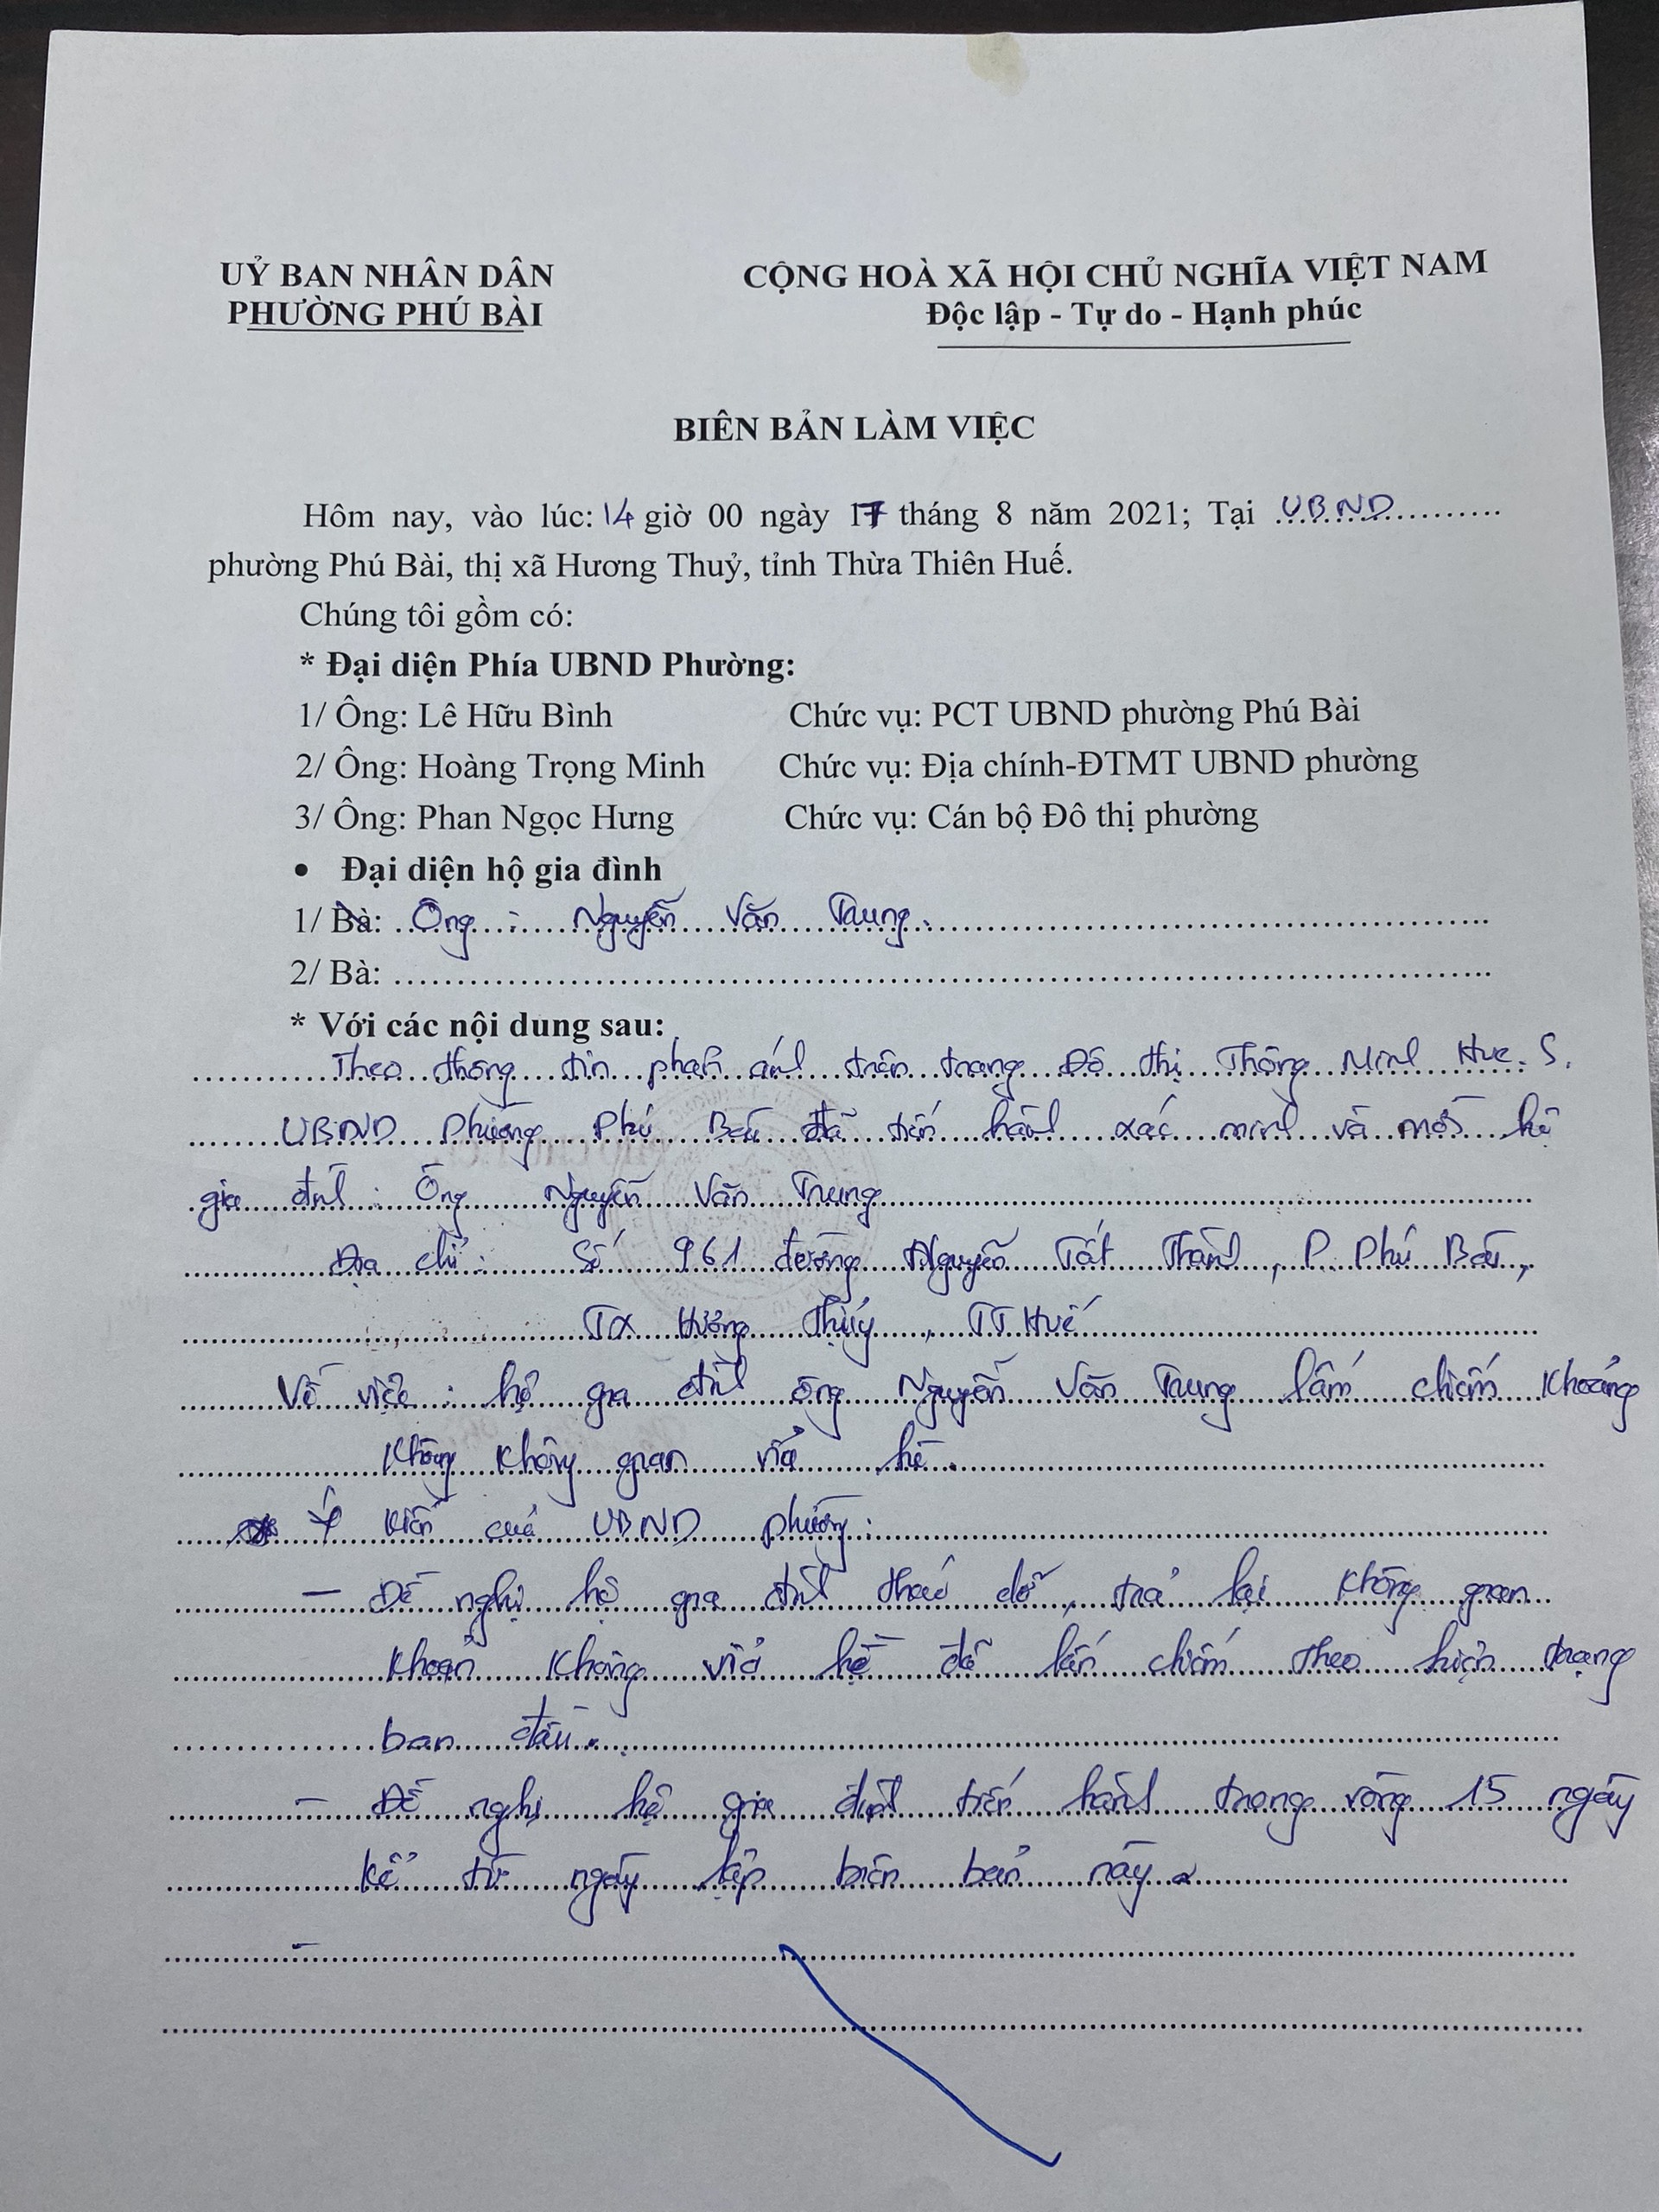 UỶ BAN NHÂN DÂN
PHƯỜNG PHÚ BÀI
CỘNG HOÀ XÃ HỘI CHỦ NGHĨA VIỆT NAM
Độc lập - Tự do - Hạnh phúc
BIÊN BẢN LÀM VIỆC
Hôm nay, vào lúc: 14 giờ 00 ngày 17 tháng 8 năm 2021; Tại UBND
phường Phú Bài, thị xã Hương Thuỷ, tỉnh Thừa Thiên Huế.
Chúng tôi gồm có:
* Đại diện Phía UBND Phường:
1/ Ông: Lê Hữu Bình Chức vụ: PCT UBND phường Phú Bài
2/ Ông: Hoàng Trọng Minh Chức vụ: Địa chính-ĐTMT UBND phường
3/ Ông: Phan Ngọc Hưng Chức vụ: Cán bộ Đô thị phường
• Đại diện hộ gia đình
1/ Bà: Ông : Nguyễn Văn Trung.
2/ Bà:
* Với các nội dung sau:
Theo thông tin phản ánh trên trang Đô thị Thông Minh Hue.S.
UBND Phường Phú Bài đã tiến hành xác minh và mời hộ
gia đình : Ông Nguyễn Văn Trung
Địa chỉ : Số 961 đường Nguyễn Tất Thành, P. Phú Bài,
TX Hương Thủy, TT Huế
Về việc : hộ gia đình ông Nguyễn Văn Trung lấn chiếm khoảng
không không gian vỉa hè.
Ý kiến của UBND phường:
- Đề nghị hộ gia đình tháo dỡ, trả lại không gian
khoản không vỉa hè đã lấn chiếm theo hiện trạng
ban đầu.
- Đề nghị hộ gia đình tiến hành trong vòng 15 ngày
kể từ ngày lập biên bản này
-